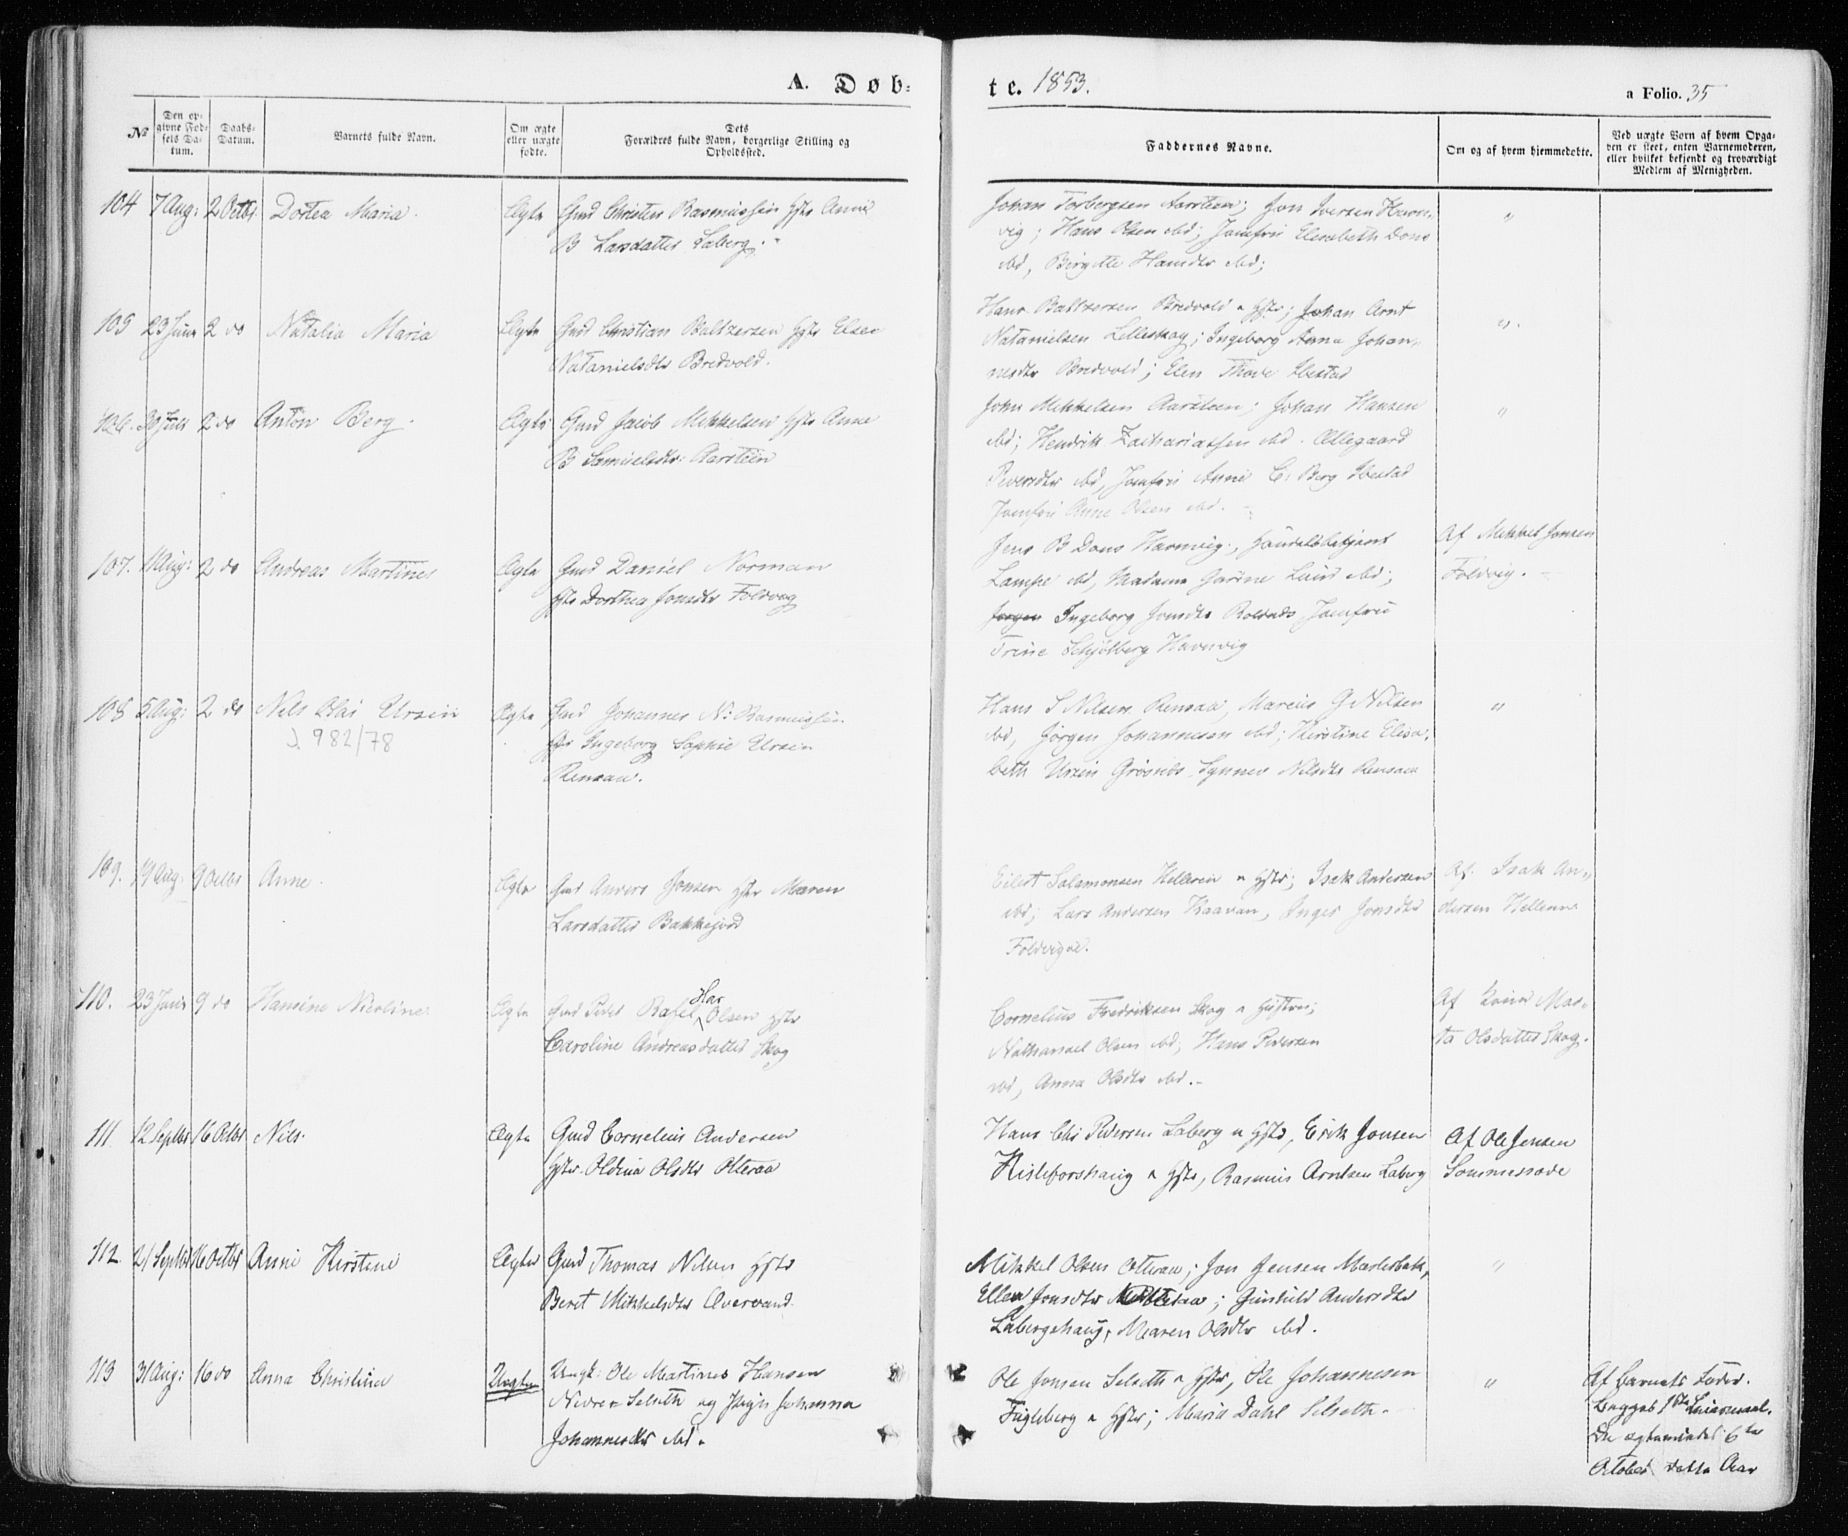 A. Døb-
te. 1853.
a Folio. 35
№
Den op-
givne Fød-
sels Da-
tum.
Daabs-
Datum.
Barnets fulde Navn.
Om ægte
eller uægte
fødte.
Dets
Forældres fulde Navn, borgerlige Stilling og
Opholdssted.
Faddernes Navne.
Om og af hvem hjemmedøbte.
Ved uægte Born af hvem Opga-
ven er skeet, enten Barnemoderen,
eller hvilket bekjendt og troværdigt
Medlem af Menigheden.
104 7 Aug: 2 Octbr Dortea Maria. Ægte Gmd Christen Rasmussen Hstr Anne
B Larsdatter Laberg.
Johan Torbergsen Aarsteen; Jon Iversen Havn-
vig; Hans Olsen ibd; Jomfru Elisabeth Dons
ibd, Birgitte Hansdtr ibd; "
105 23 Juni 2 do Natalia Maria Ægte Gmd Christian Baltzersen Hstr Elen
Natanielsdtr Bredvold.
Hans Baltzersen Bredvold & Hstr; Johan Arnt
Natanielsen Lilleskog; Ingeborg Anna Johan-
nesdtr Bredvold; Elen Ibestad "
106. 30 Juli 2 do Anton Berg. Ægte Gmd Jacob Mikkelsen Hstr Anne
B Samuelsdtr: Aarsteen
John Mikkelsen Aarsteen; Johan Hansen
ibd; Hendrik Zachariassen ibd. Ellegaard
Iversdtr ibd, Jomfru Anne C. Berg Ibestad
Jomfru Anne Olsen ibd. "
107. 11 Aug: 2 do Andreas Martines Ægte Gmd Daniel Norman
Hstr Dorthea Jonsdtr Foldvog
Jens B Dons Havnvig, Handelsbetjent
Lampe ibd, Madame Lund ibd;
Jørgen Ingeborg Jonsdtr Jomfru
Trine Schjølberg Havnvig
Af Mikkel Jonsen
Foldvig.
108 5 Aug: 2 do Nils Olai Ursin Ægte Gmd Johannes N: Rasmussen
Hstr Ingeborg Sophie Ursin
Rensaa.
J. 982/78
Hans S Nilsen Rensaa, Marcus G Nilsen
ibd, Jørgen Johannesen ibd; Kirstine Elisa-
beth Ursin Grøsnes, Synner Nilsdtr Rensaa "
109. 19 Aug: 9 Octbr Anne. Ægte Gmd Anders Jonsen Hstr Maren
Larsdatter Bakkejord
Eilert Salamonsen Helleren & Hstr; Isak Andersen
ibd; Lars Andersen Kaavan, Inger Jonsdtr
Foldvigen.
Af. Isak An-
dersen Helleren
110. 23 Juni 9 do Hansine Nicoline. Ægte Gmd Peder Rafel Har Olsen Hstr
Caroline Andreasdatter Skog
Cornelius Fredriksen Skog & Hustru;
Nathanael Olsen ibd, Hans Pedersen
ibd, Anna Olsdtr ibd.
Af Mar-
ta Olsdatter Skog.
111. 12 Septbr 16 Octbr Nils. Ægte Gmd Cornelius Andersen
Hstr. Oldina Olsdtr Otteraa
Hans Chr Pedersen Laberg & Hstr, Erik Jonsen
Kisteforshaug & Hstr, Rasmus Arntsen Laberg
Af Ole Jensen
112. 21 Septbr 16 Octbr Anne Kirstine Ægte Gmd Thomas Nilsen Hstr
Beret Mikkelsdtr Overvand.
Mikkel Olsen Otteraa; Jon Jensen
Ellen Jonsdtr Otteraa; Gunhild Andersdtr
Labergshaug, Maren Olsdtr ibd. "
113 31 Aug: 16 do Anna Christina Uægte Ungk: Ole Martines Hansen
Nedre Selseth og Pige Johanna
Johannesdtr ibd.
Ole Jonsen Selseth & Hstr, Ole Johannesen
Fugleberg & Hstr; Maria Dahl Selseth. "
Af barnets Fader.
Begges 1ste Leiermaal.
De ægteviedes 6te
October dette Aar